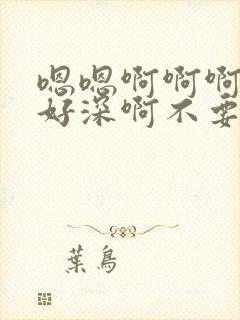 嗯嗯啊啊啊
好深啊不要
葉鳥